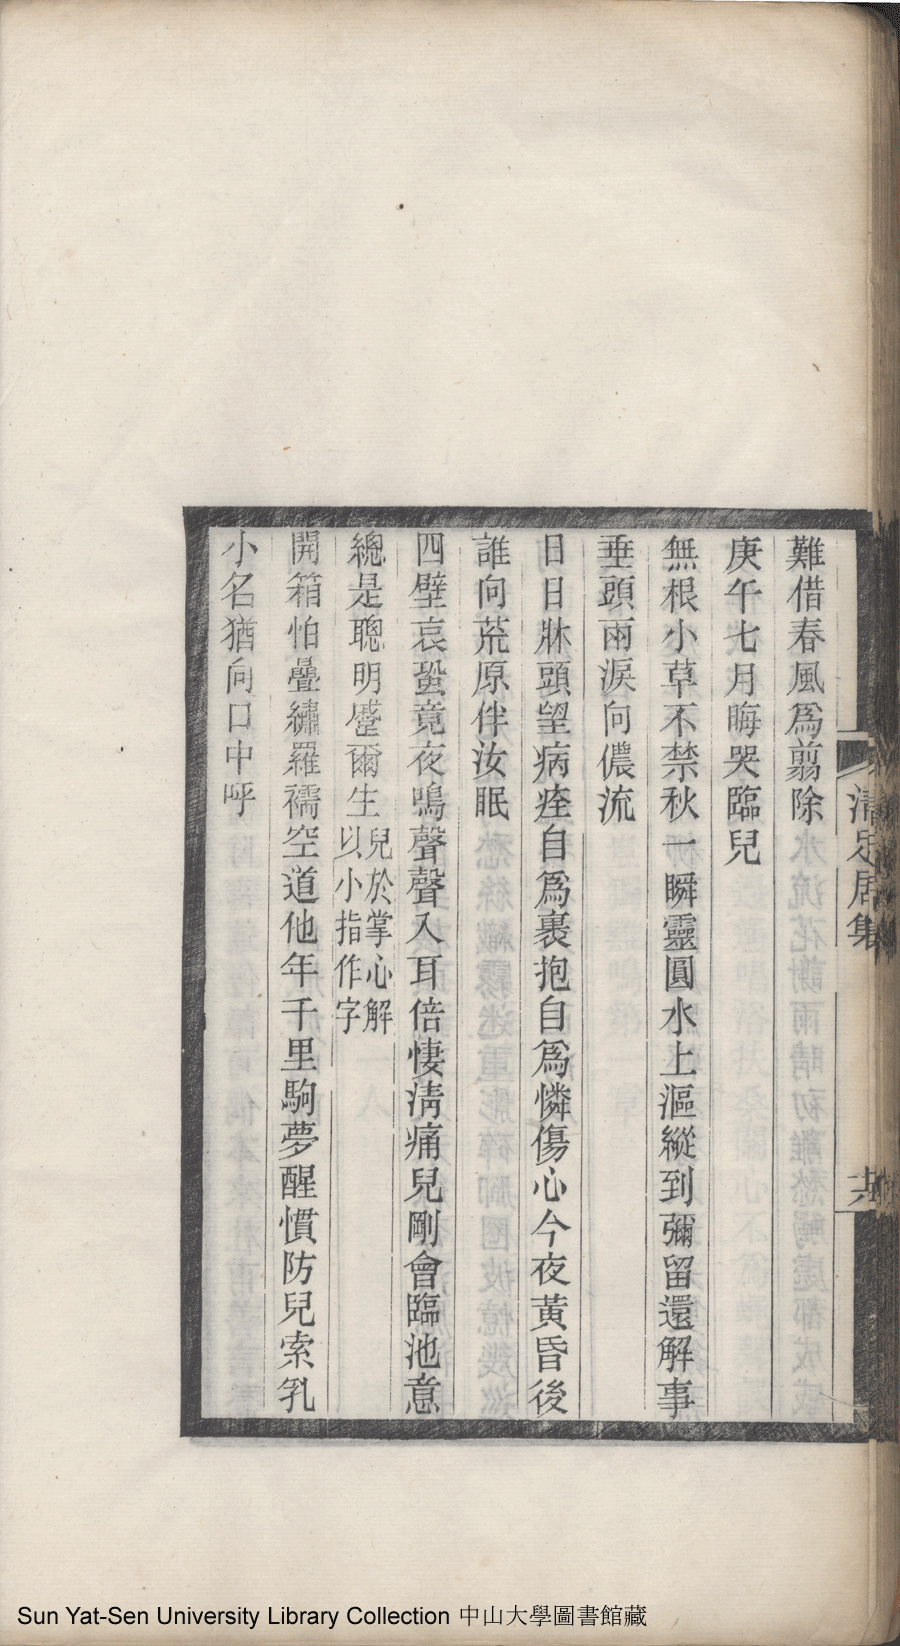 難借春風爲翦除
庚午七月晦哭臨兒
無根小草不禁秋一瞬靈圓水上漚縱到彌留還解事
垂頭雨淚向儂流
日日牀頭望病痊自爲裹抱自爲憐傷心今夜黃昏後
誰向荒原伴汝眠
四壁哀蛩竟夜鳴聲聲入耳倍悽淸痛兒剛會臨池意
總是聰明蹙爾生兒於掌心解以小指作字
開箱怕疊繡羅襦空道他年千里駒夢醒慣防兒索乳
小名猶向口中呼
清足居集
十六
Sun Yat-Sen University Library Collection 中山大學圖書館藏